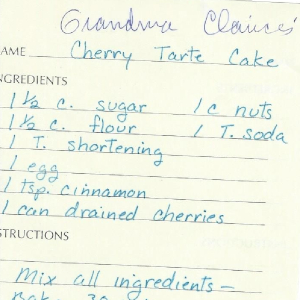 Grandma Clarice's
AME Cherry Tarte Cake
NGREDIENTS
1 1/2 c. sugar 1 c nuts
1 1/2 c. flour 1 T. soda
1 T. shortening
1 egg
1 tsp. cinnamon
1 can drained cherries
STRUCTIONS
Mix all ingredients -